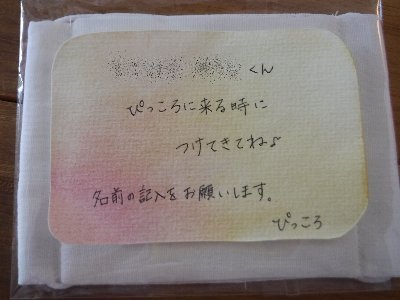 くん
ぴっころに来る時に
つけてきてね♪
名前の記入をお願いします。
ぴっころ